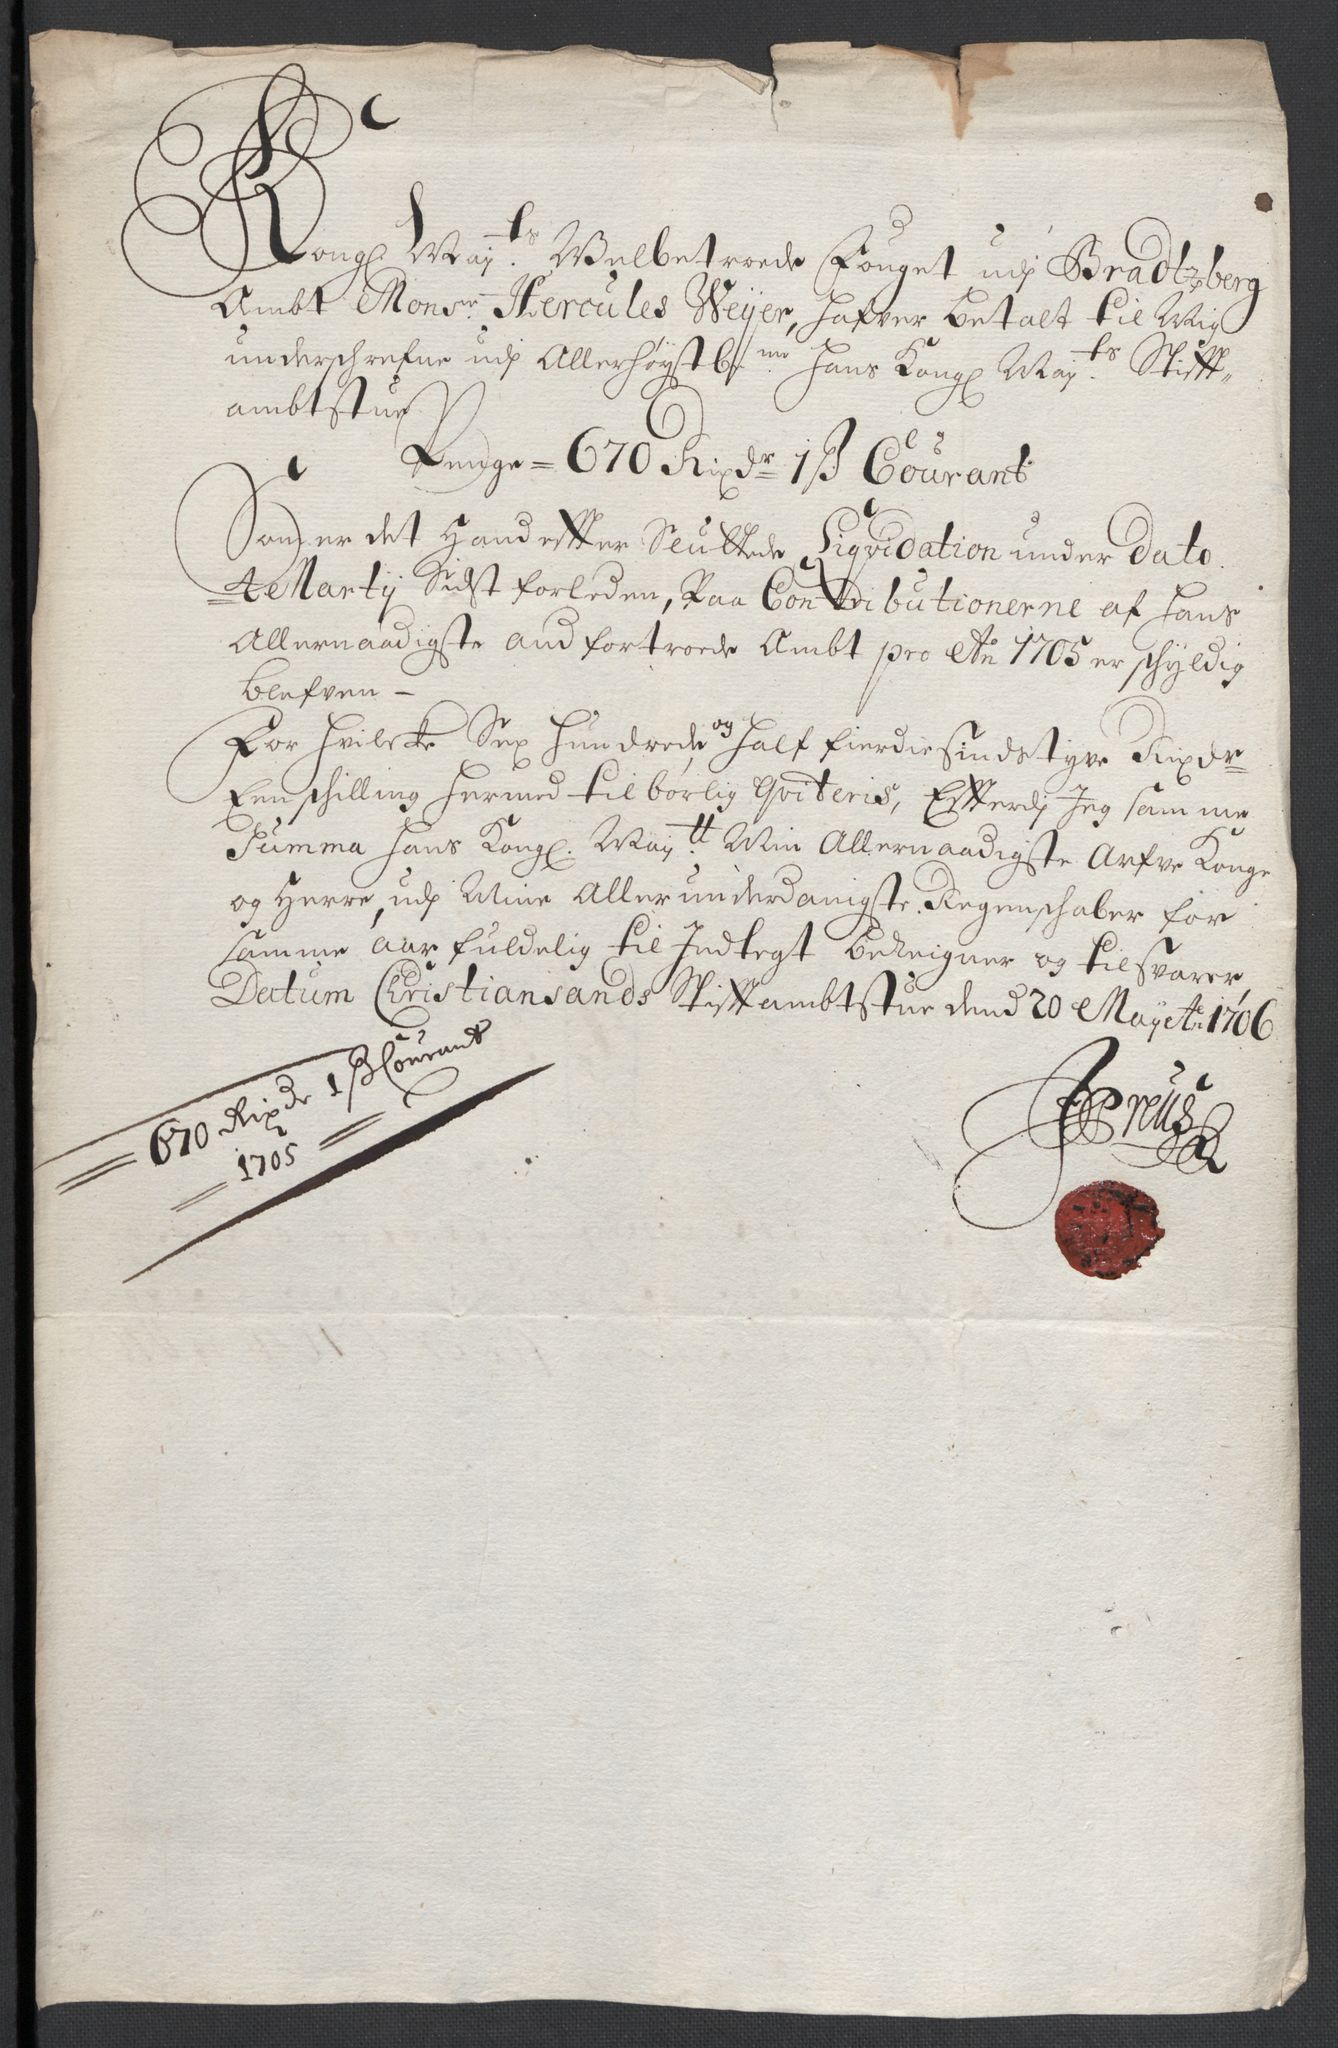 Kongl May:ts Welbetroede Fouget udj Bradtzberg
Ambt Monsr: Hercules Weyer, hafver betalt til Mig
underschrefne udj Allerhøystbr:ne hans Kongl May:ts Stifft-
ambtstue
Penge = 670 Rixdr 1 ß Courant
Som er det Hand effter Sluttede Liqvidation under Dato
4 Martij Sidst forleden, Paa Contributionerne af hans
Allernaadigste anfortroede Ambt pro Ao 1705 er schyldig
blefven -
For hvilcke Sex hundrede, og half fierdiesindstyve Rixdr
Een schilling hermed tilbørlig Qviteris, Effterdj Jeg samme
Summa hans Kongl. May:tt Min Allernaadigste Arfve Konge
og Herre, udj Mine Allerunderdanigste Regenschaber for
samme aar fuldelig til Indtegt bereigner og tilsvarer,
Datum Christiansands Stifftambtstue dend 20 May Ao 1706
670 Rixdr 1 ß Courant
1705